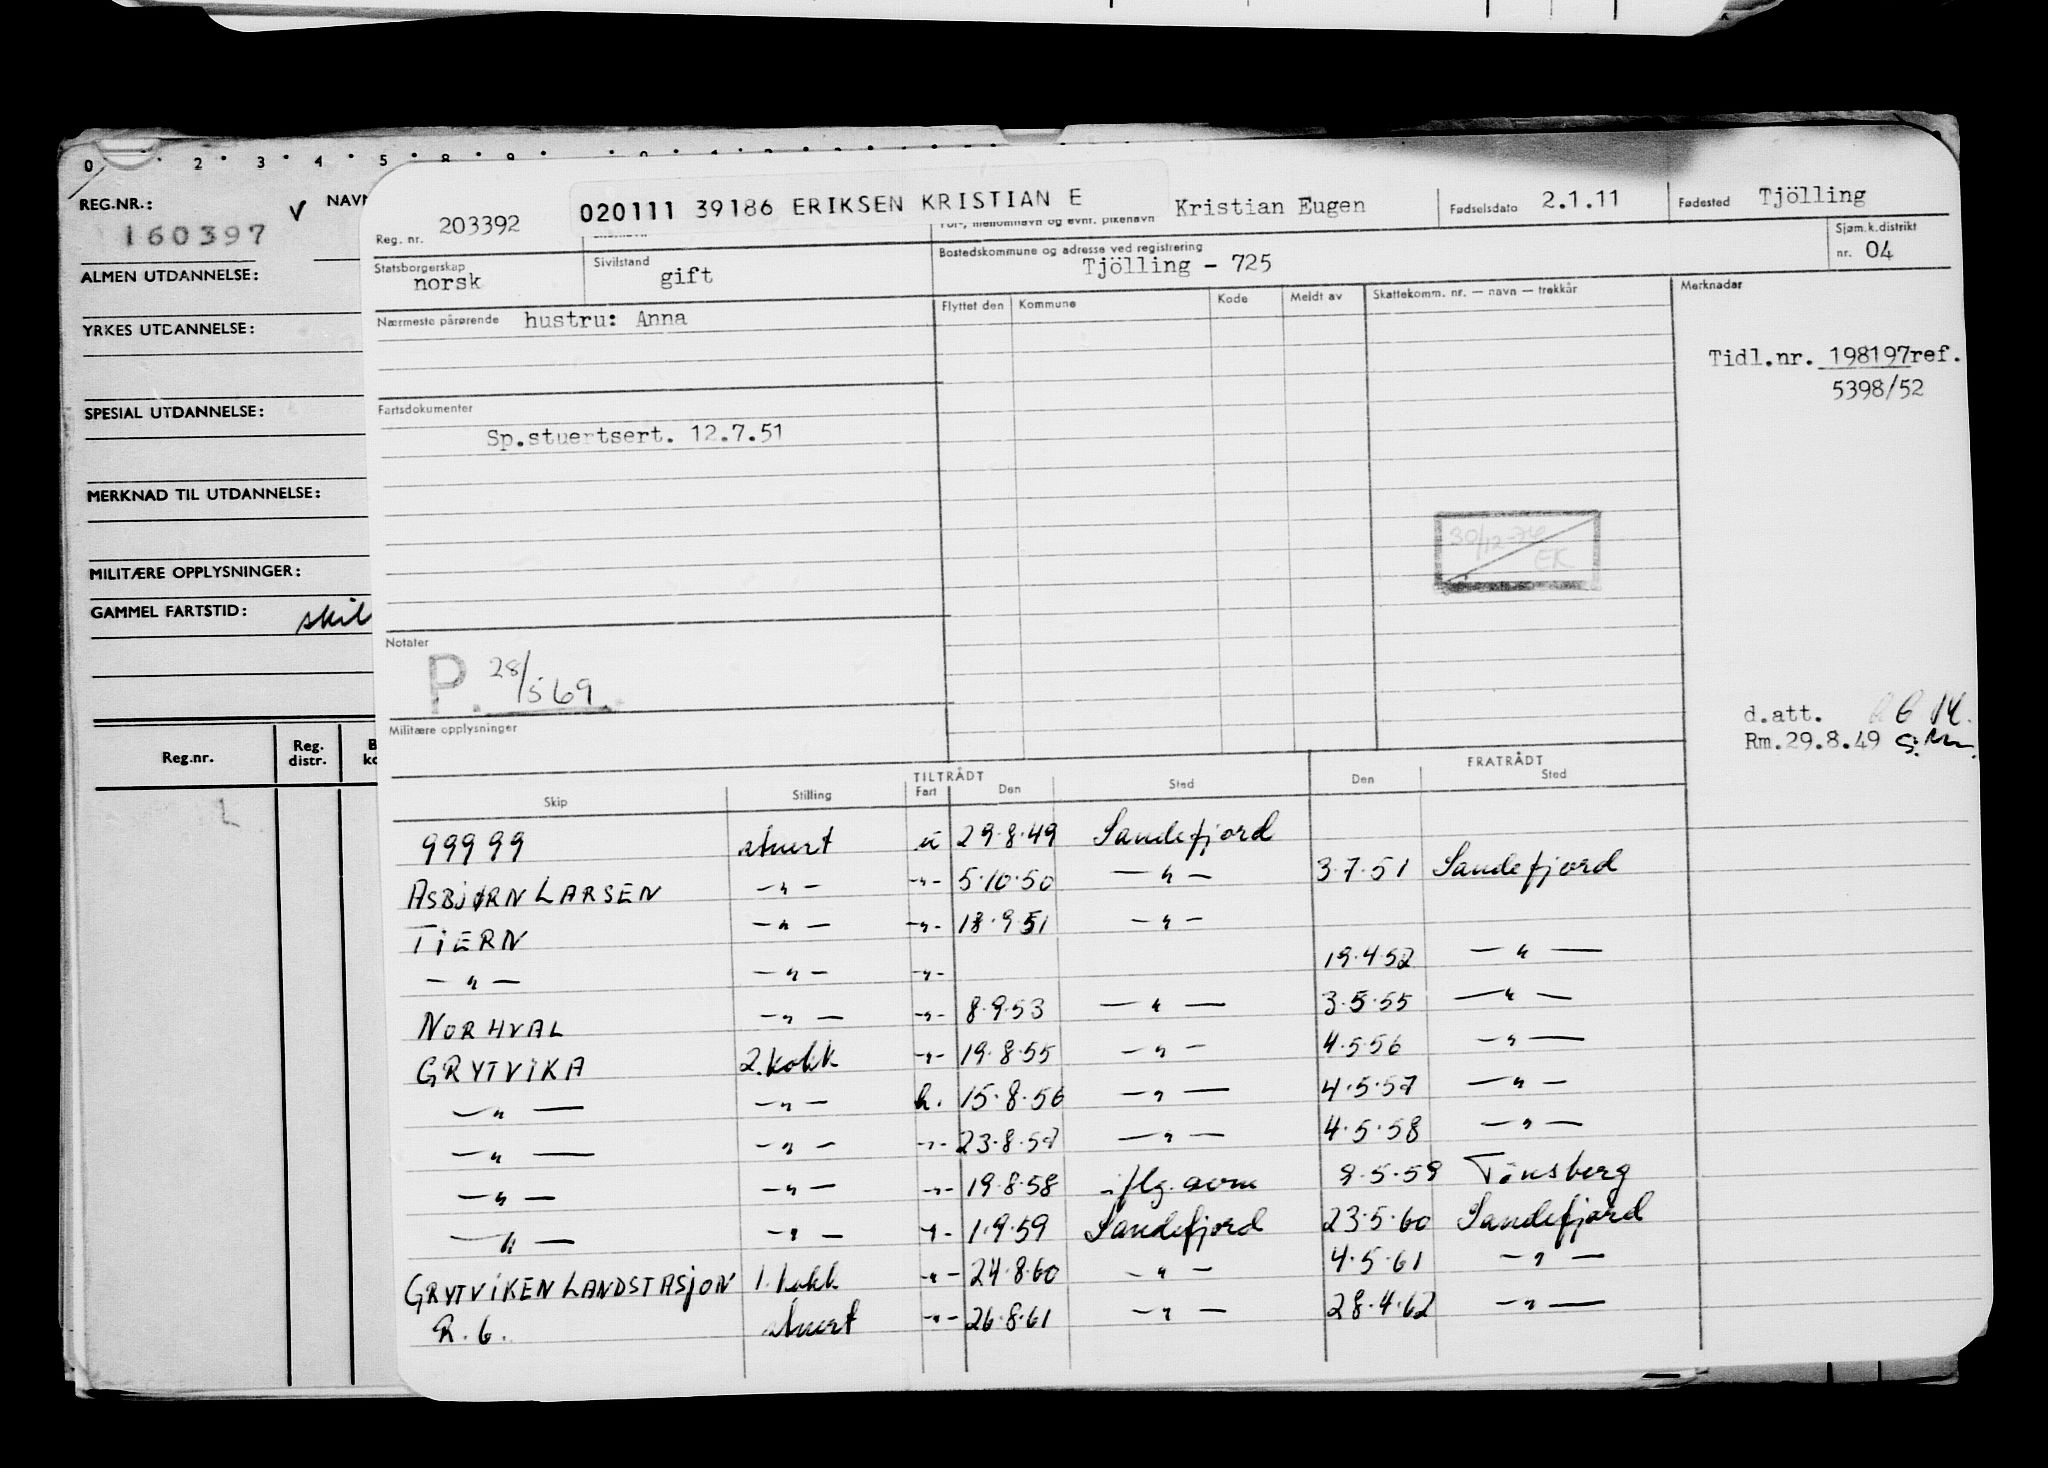 0 2 3 4 5 8 9
REG.NR.: 160397 V NAVN
ALMEN UTDANNELSE:
YRKES UTDANNELSE:
SPESIAL UTDANNELSE:
MERKNAD TIL UTDANNELSE:
MILITÆRE OPPLYSNINGER:
GAMMEL FARTSTID: skil
Reg.nr. Reg. distr.
Reg. nr. 203392 020111 39186 ERIKSEN KRISTIAN E For-, mellomnavn og evnt. pikenavn Kristian Eugen Fødselsdato 2.1.11 Fødested Tjölling
Statsborgerskap norsk Sivilstand gift Bostedskommune og adresse ved registrering Tjölling - 725 Sjøm.k.distrikt nr. 04
Nærmeste pårørende hustru: Anna Flyttet den Kommune Kode Meldt av Skattekomm. nr. — navn — trekkår Merknader
Tidl.nr. 198197 ref.
5398/52
Fartsdokumenter
Sp.stuertsert. 12.7.51
30/12-76
EK
Notater
P. 28/5 69
Militære opplysninger
d.att.
Rm.29.8.49
TILTRÅDT FRATRÅDT
Skip Stilling Fart Den Sted Den Sted
99999 stuert u 29.8.49 Sandefjord
ASBJØRN LARSEN —"— -"- 5.10.50 —"— 3.7.51 Sandefjord
TIERN —"— -"- 18.9.51 —"—
—"— —"— -"- 19.4.52 —"—
NORHVAL —"— -"- 8.9.53 —"— 3.5.55 —"—
GRYTVIKA 2.kokk -"- 19.8.55 —"— 4.5.56 —"—
—"— —"— h. 15.8.56 —"— 4.5.57 —"—
—"— —"— -"- 23.8.57 —"— 4.5.58 —"—
—"— —"— -"- 19.8.58 iflg. 9.5.59 Tönsberg
—"— —"— -"- 1.9.59 Sandefjord 23.5.60 Sandefjord
GRYTVIKEN LANDSTASJON 1.kokk -"- 24.8.60 —"— 4.5.61 —"—
R.6. stuert -"- 26.8.61 —"— 28.4.62 —"—